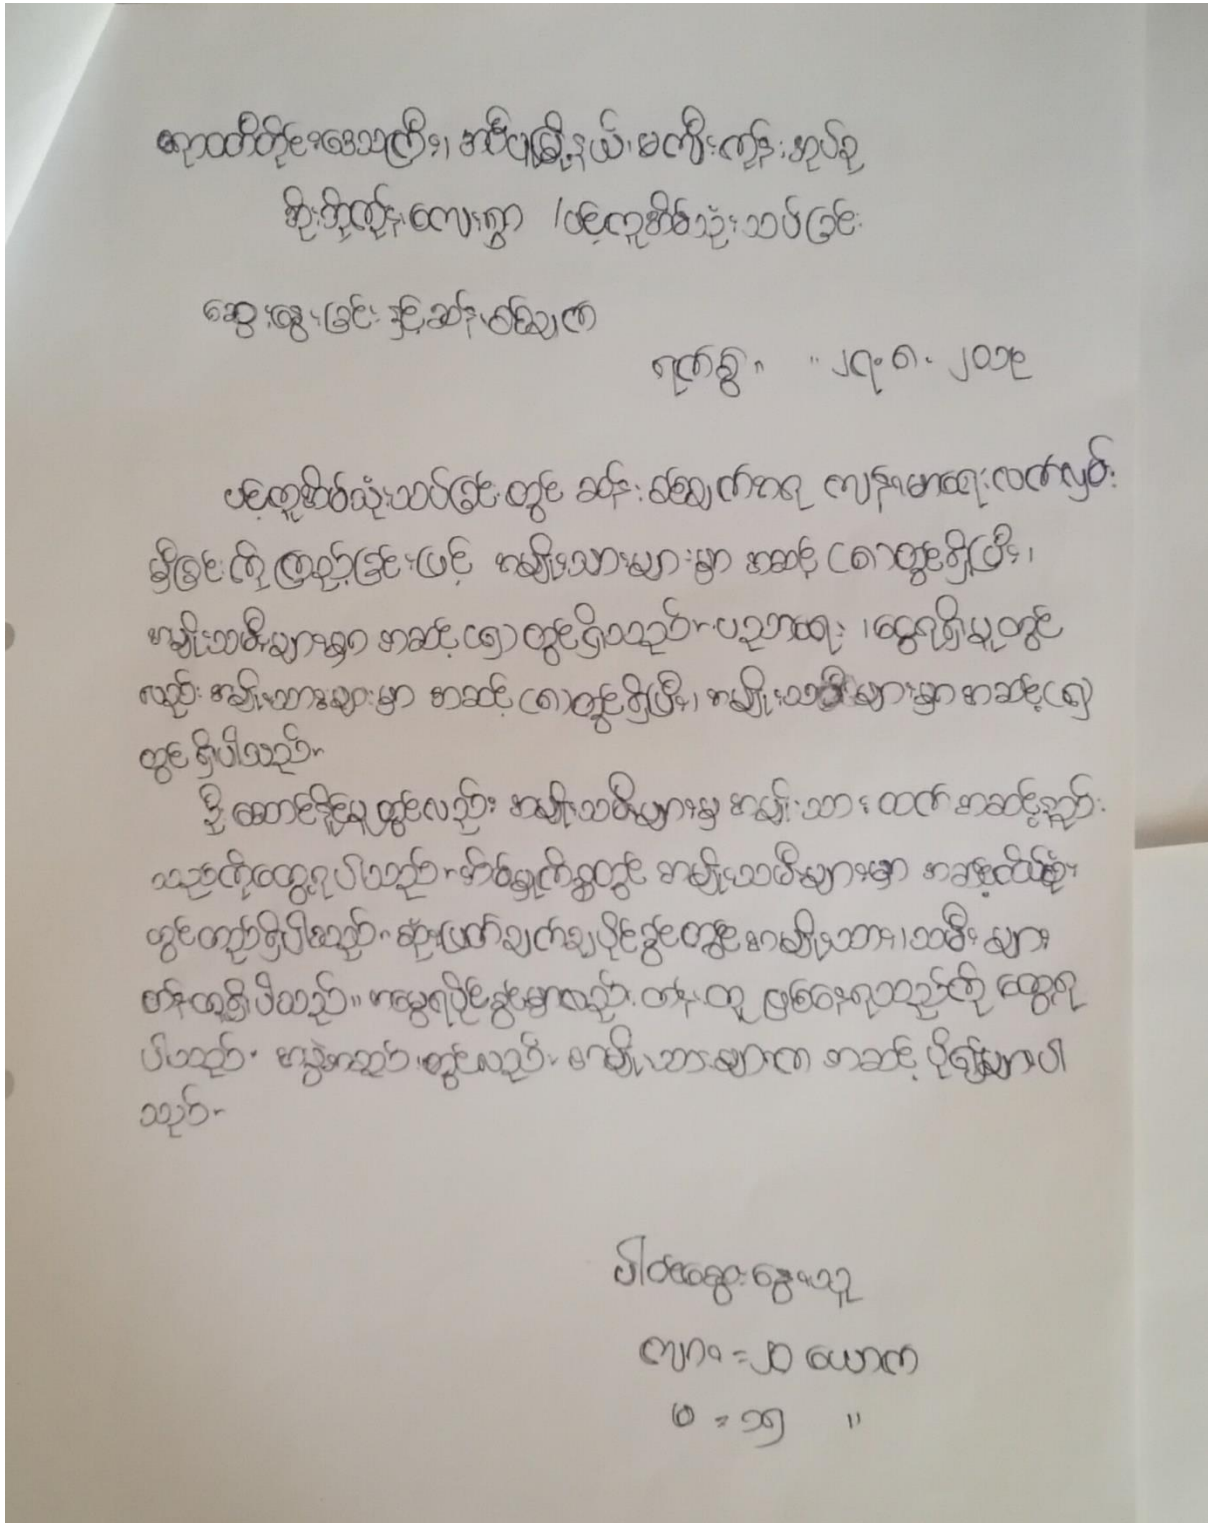 ဧရာဝတီတိုင်းဒေသကြီး၊ အင်္ဂပူမြို့နယ်၊ မကျီးကုန်းအုပ်စု
အိုးဘိုကုန်းကျေးရွာ /ပင့်ကူအိမ်သုံးသပ်ခြင်း
ဆွေးနွေးခြင်း နှင့်ဆန်းစစ်ချက်
ရက်စွဲ ။ ။ ၂၇.၈. ၂၀၁၉
ပင့်ကူအိမ်သုံးသပ်ခြင်းတွင် ဆန်းစစ်ချက်အရ ကျန်းမာရေးလက်လှမ်း
မှီခြင်းကို ကြည့်ခြင်းဖြင့် အမျိုးသားများမှာ အဆင့် (၈)တွင်ရှိပြီး၊
အမျိုးသမီးများမှာ အဆင့်(၅)တွင်ရှိသည်။ ပညာရေး ၊ငွေရရှိမှုတွင်
လည်း အမျိုးသားများမှာ အဆင့် (၈)တွင်ရှိပြီး၊ အမျိုးသမီးများမှာ အဆင့်(၅)
တွင်ရှိပါသည်။
ဦးဆောင်နိုင်မှုတွင်လည်း အမျိုးသမီးများမှ အမျိုးသား ထက် အဆင့်နည်း
သည်ကိုတွေ့ရပါသည်။ အိမ်ရှုကိစ္စတွင် အမျိုးသမီးများမှာ အဆင့်
တွင်တည်ရှိပါသည်။ ဆုံးဖြတ်ချက်ချပိုင်ခွင့်တွင် အမျိုးသား၊သမီးများ
တန်းတူရှိပါသည်။ အမွေရပိုင်ခွင့်မှာလည်း တန်းတူ ဖြစ်နေရသည်ကို တွေ့ရ
ပါသည်။ အဖွဲ့အစည်းတွင်လည်း အမျိုးသားများက အဆင့် ပို၍များပါ
သည်။
ပါဝင်ဆွေးနွေးသူ
ကျား = ၂၀ ယောက်
မ = ၁၅ "